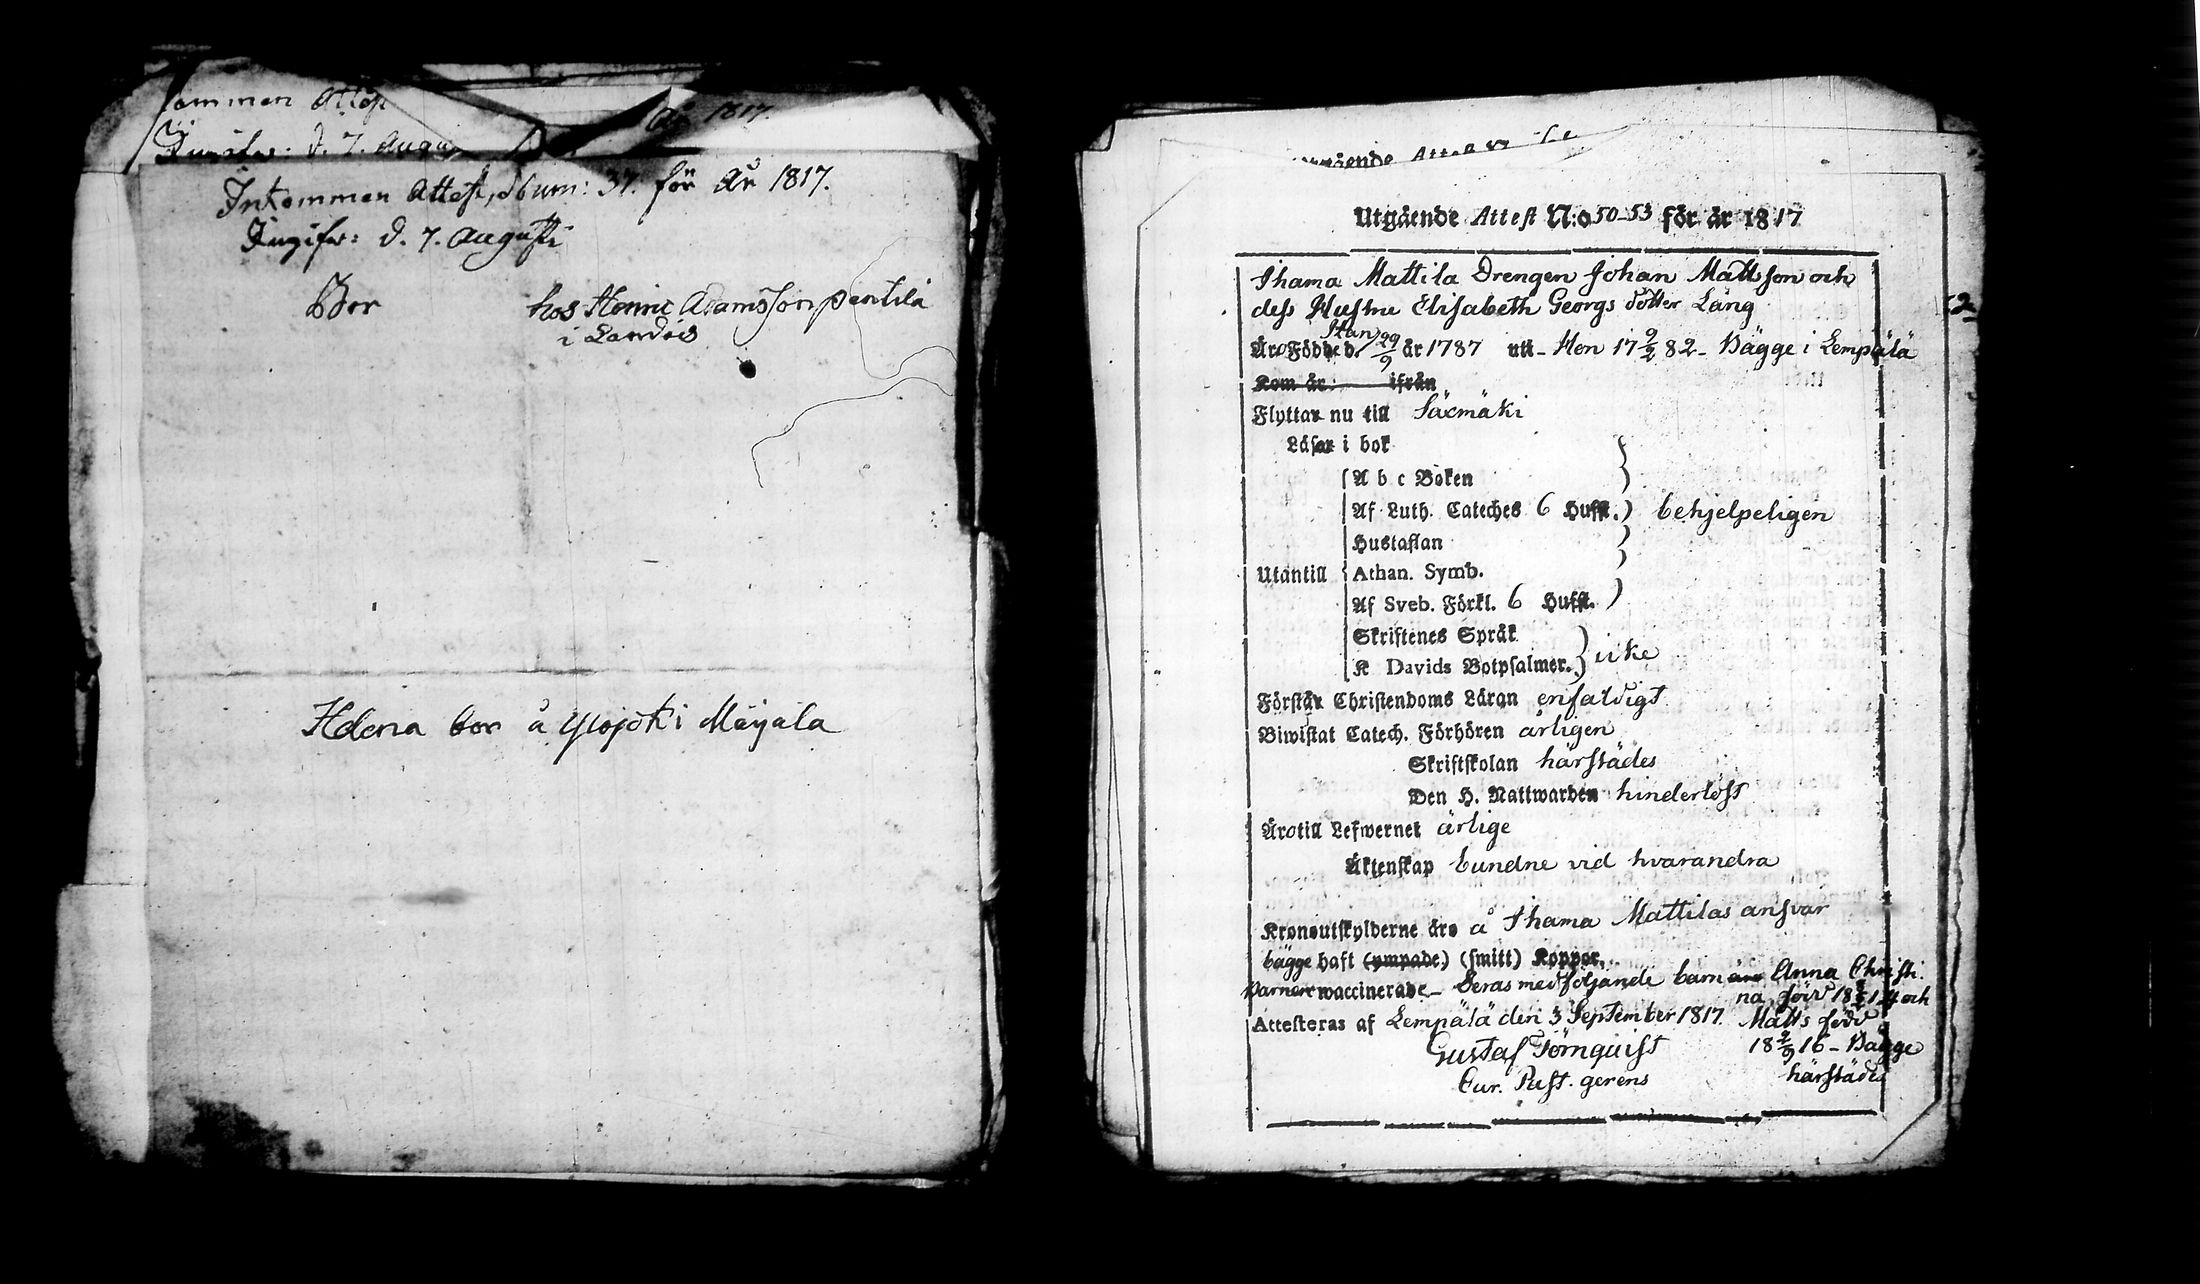 ommen Attest
Ingifw: d. 7. Augu
År 1817.
Inkommen Attest, Num: 37. för År 1817.
Ingifw: d. 7. Augusti
Bor hos Henric Adamsson Pentilä
i Landois
Helena bor å Ylojoki Mäyälä
gående Attest N
Utgående Attest N:o 50-53 för år 1817
Ihama Mattila Drengen Johan Mattsson och
dess Hustru Elisabeth Georgs dotter Lång
Han
Äro Födde d. 29/9 år 1787 uti - Hon 17 9/2 82 - Bägge i Lempälä
Kom år: ifrån
Flyttar nu till Säxmäki
Läsar i bok
A b c Boken
Af Luth. Cateches 6 Hufst. behjelpeligen
Hustaflan
Utantill Athan. Symb.
Af Sveb. Förkl. 6 Hufst.
Skriftenes Språk
K Davids Botpsalmer. icke
Förstår Christendoms Läran enfaldigt
Biwistat Catech. Förhören årligen
Skriftskolan härstädes
Den H. Nattwarden hinderlöst
Äro till Lefwernet ärlige
Äktenskap bundne vid hvarandra
Kronoutskylderne äro å Ihama Mattilas answar
bägge haft (ympade) (smitt) Koppor.
Barnen waccinerade - Deras medföljande barn äro Anna Christi-
na, född 18 14 och
Attesteras af Lempälä den 3 September 1817. Matts född
Gustaf Törnquist 18 2/9 16 - Bägge
Cur. Past. gerens härstädes